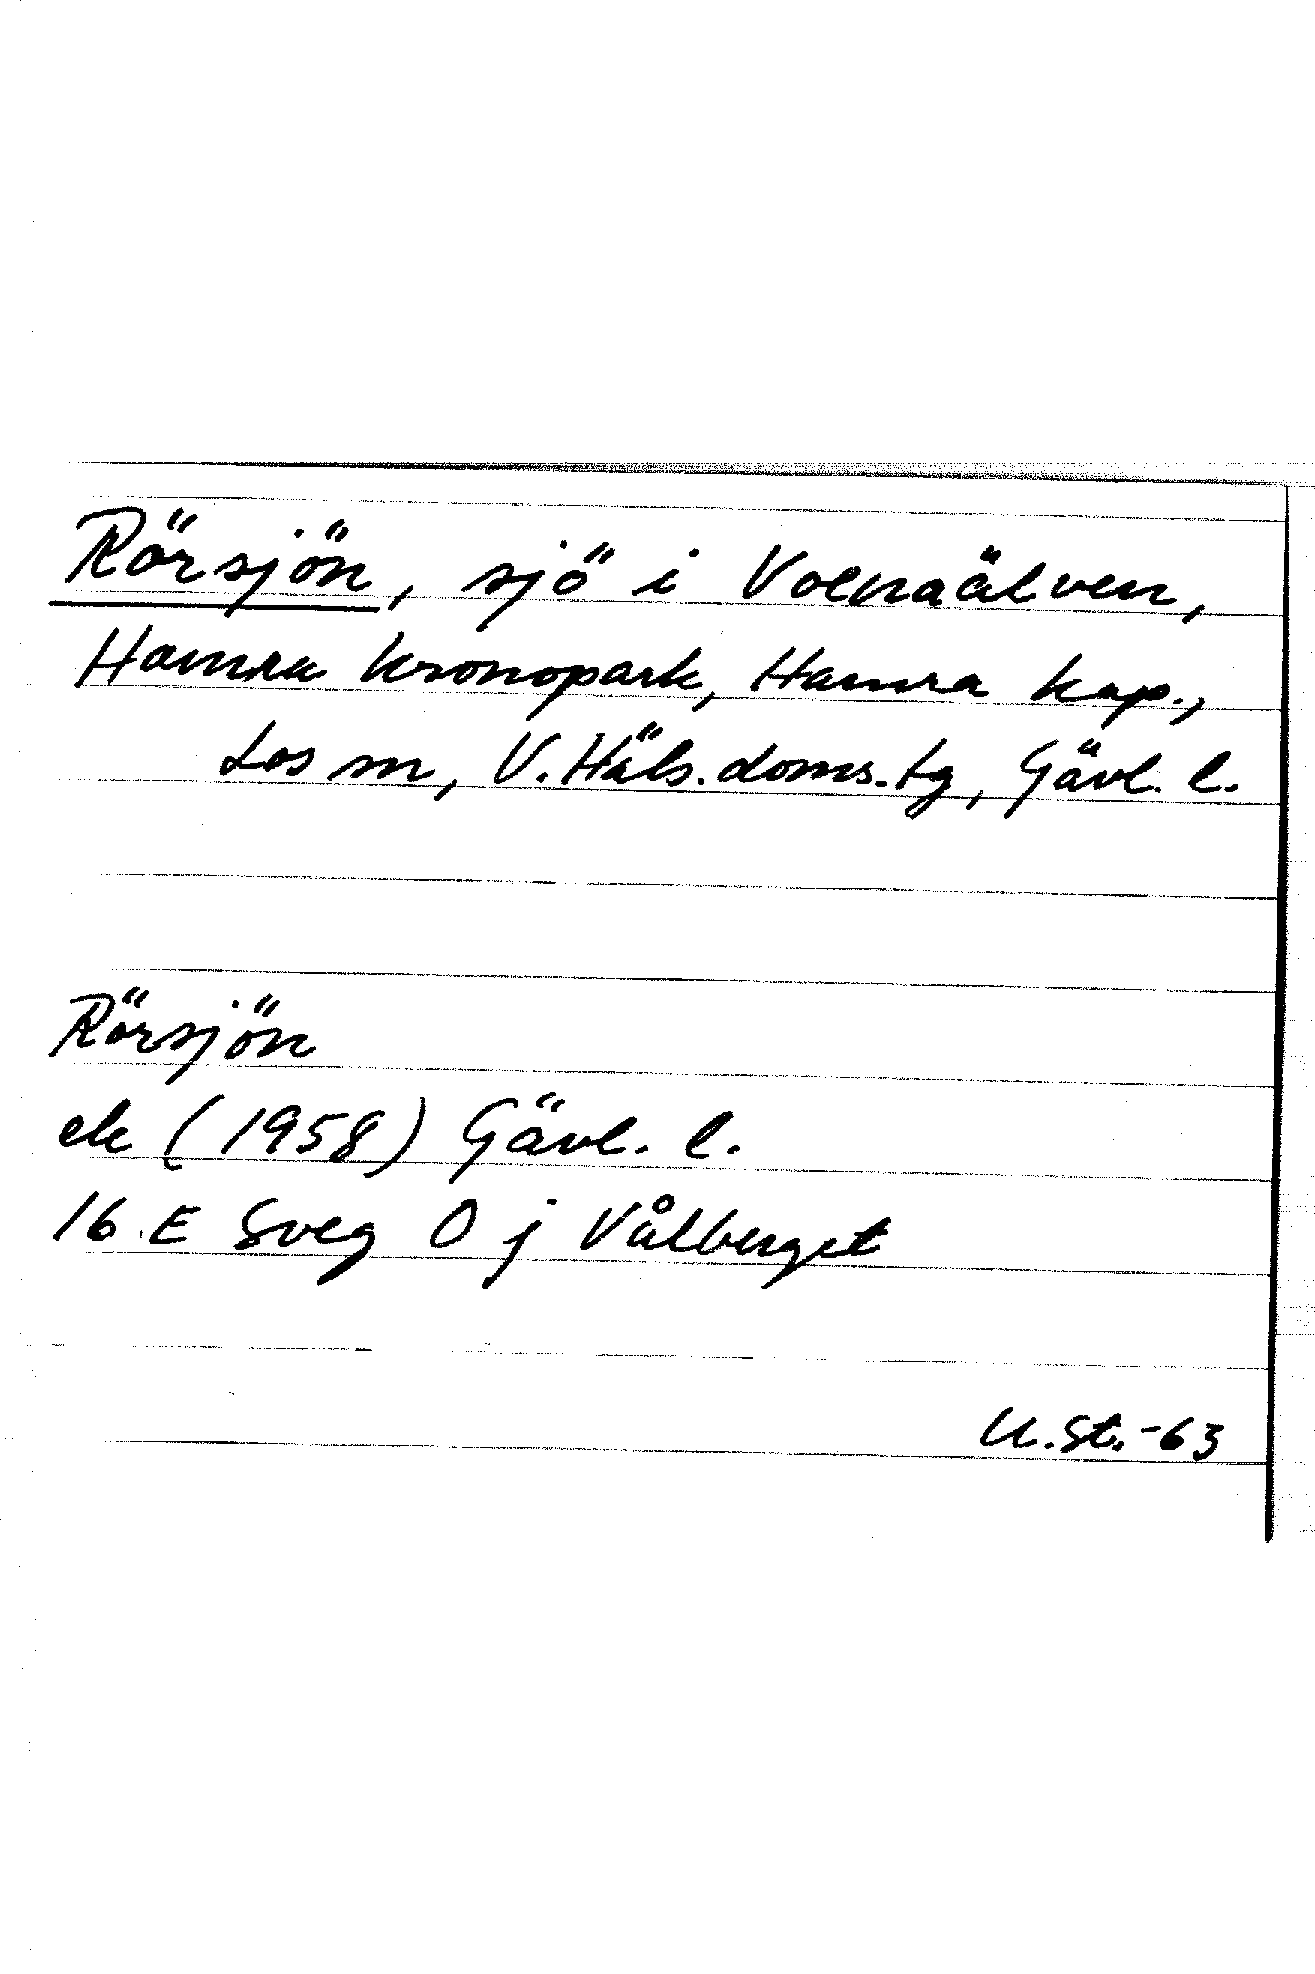 Rörsjön, sjö i Voxnaälven,
Hamra kronopark, Hamra kap.,
Los sn, V. Häls. doms. tg, Gävl. l.
Rörsjön
ek (1958) Gävl. l.
16 E Sveg O j Vålberget
U. St. -63